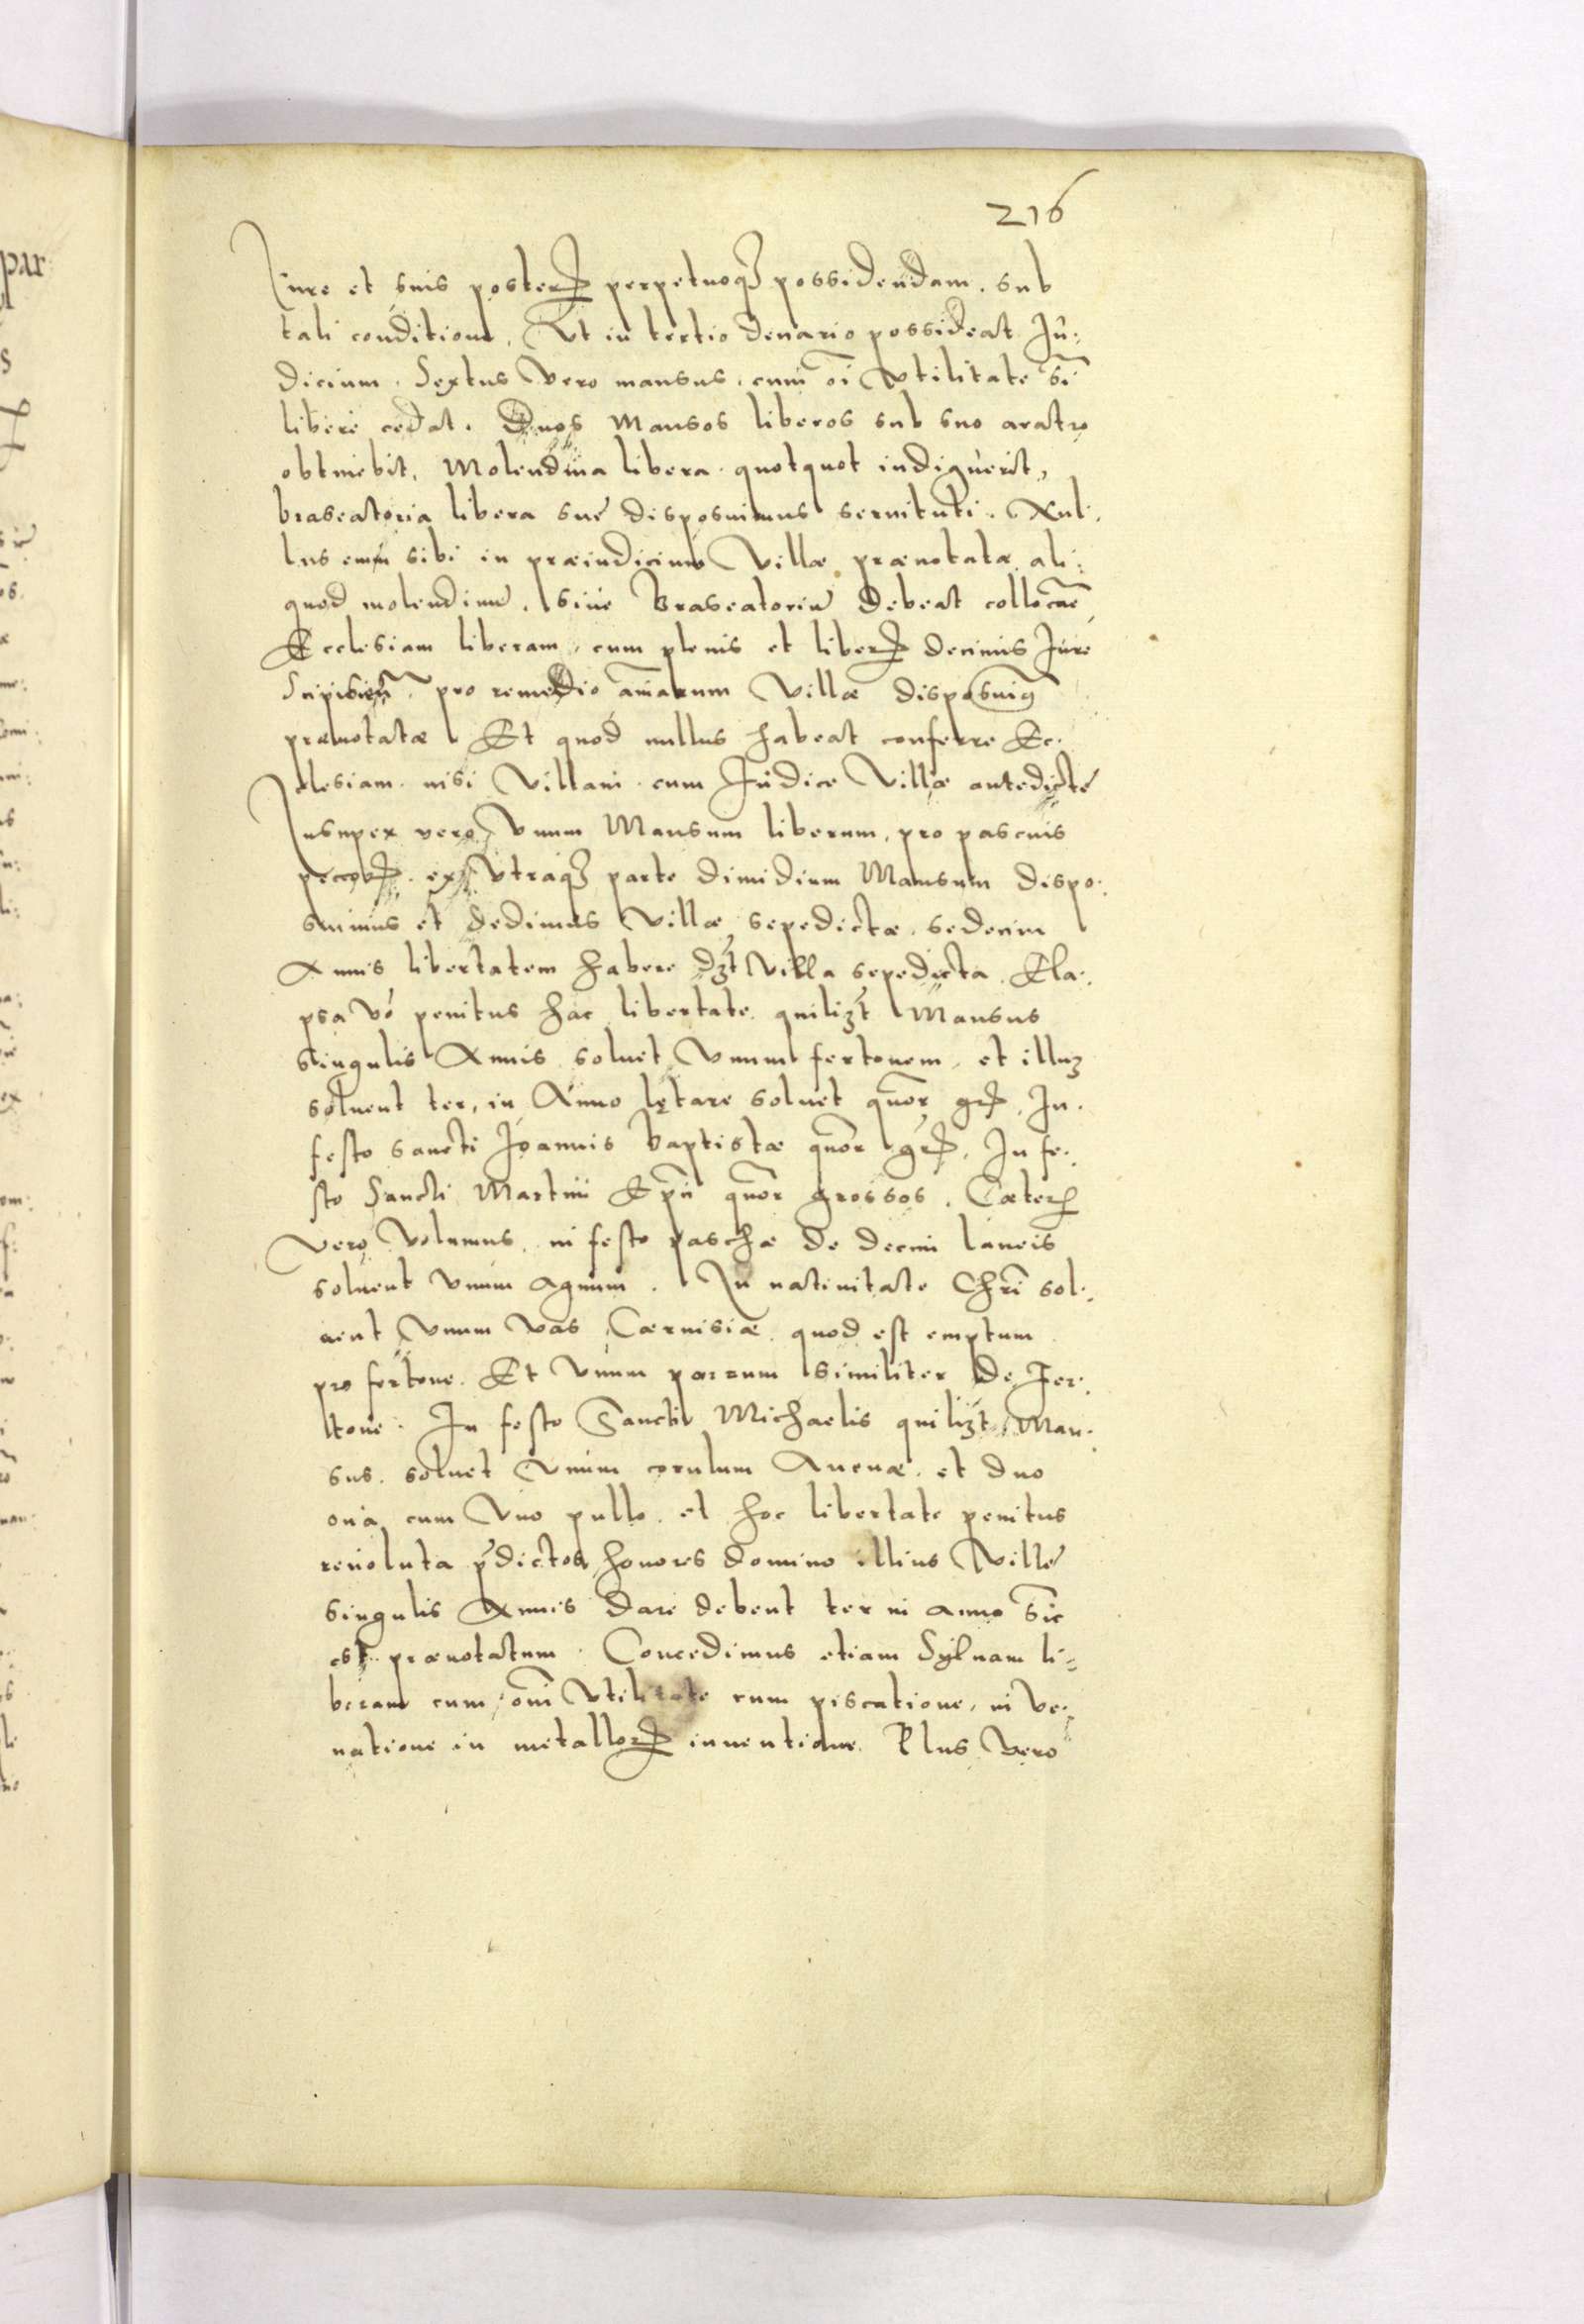 216
Iure et suis posterꝝ perpetuoqꝫ possidendam. sub
tali conditione, Vt in tertio denario possideat Iu:
dicium. Sextus vero mansus. cum oī vtilitate sī
libere cedat. Duos Mansos liberos sub suo aratro
obtinebit, Molendina libera. quotquot indiguerit,
braseatoria libera sue disposuimus seruituti. Nul:
lus enim sibi in præiudicium Villæ prænotatæ ali:
quod molendinū. siue braseatoriū debeat collocāe
Ecclesiam liberam, cum plenis et liberꝝ decimis Iure
pro remedio aīmarum Villæ disposuimꝰ
prænotatæ Et quod nullus habeat conferre Ec:
clesiam. nisi Villani. cum Iudice Villæ antedicte
Insuper vero, Vnum Mansum liberum, pro pascuis
pecorꝝ. ex vtraqꝫ parte dimidium Mansum dispo:
suimus et dedimus Villæ sepedictæ. sedecim
Annis libertatem habere dꝫt Villa sepedicta. Ela:
psa vō penitus hac libertate. quilizt Mansus
singulis Annis soluet Vnum fertonem, et illuꝫ
soluent ter, in Anno lętare soluet quōr grꝝ, In
festo sancti Ioannis baptistæ quōr grꝝ, In fe:
sto Sancti Martini Ep̄ii quōr grossos. Cæterꝝ
Vero Volumus, in festo paschæ de decim laneis
soluent vnum agnum. In natiuitate Chrī sol:
uent vnum vas Cæruisiæ. quod est emptum
pro fertone. Et vnum porcum similiter de Fer:
tone. In festo Sancti Michaelis quilizt Man:
sus. soluet vnum corulum Auenæ. et duo
oua cum Vno pullo. et hoc libertate penitus
reuoluta p̄dictos honores domino illius Ville
singulis Annis dare debent ter in anno sīc
est prænotatum. Concedimus etiam Syluam li:
beram cum om̄i vtilitate cum piscatione, in ve:
natione in metallorꝝ inuentione. Plus vero